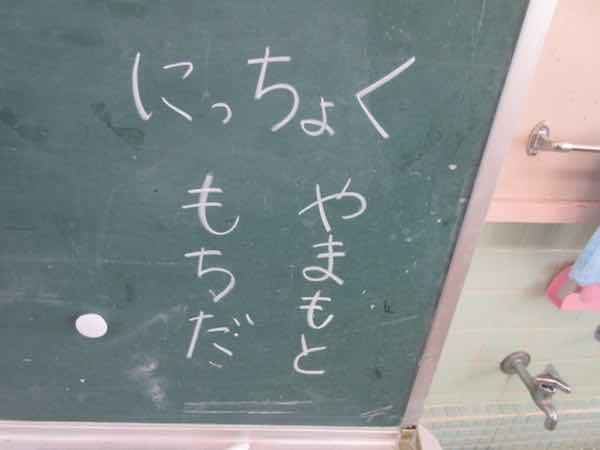 にっちょく
やまもと
もちだ